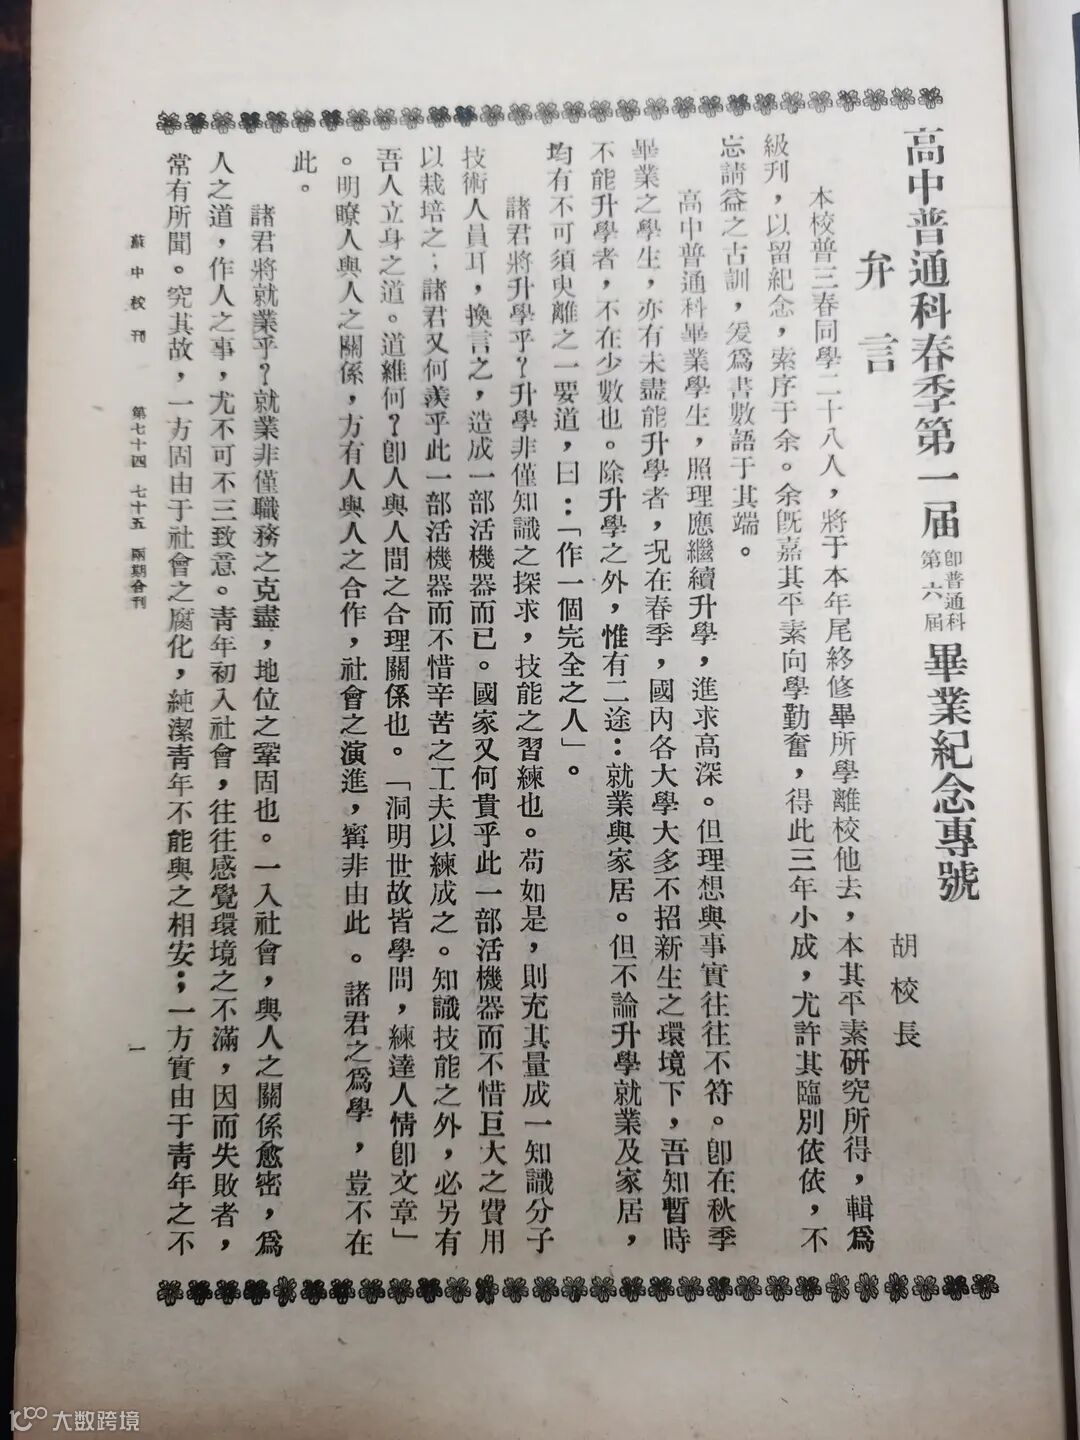 高中普通科春季第一届即普通科第六屆畢業紀念專號
弁言
胡校長
本校普三春同學二十八人，將于本年尾終修畢所學離校他去，本其平素研究所得，輯爲
級刊，以留紀念，索序于余。余既嘉其平素向學勤奮，得此三年小成，尤許其臨別依依，不
忘請益之古訓，爰爲書數語于其端。
高中普通科畢業學生，照理應繼續升學，進求高深。但理想與事實往往不符。即在秋季
畢業之學生，亦有未盡能升學者，况在春季，國內各大學大多不招新生之環境下，吾知暫時
不能升學者，不在少數也。除升學之外，惟有二途：就業與家居。但不論升學就業及家居，
均有不可須臾離之一要道，曰：「作一個完全之人」。
諸君將升學乎？升學非僅知識之探求，技能之習練也。苟如是，則充其量成一知識分子
技術人員耳，換言之，造成一部活機器而已。國家又何貴乎此一部活機器而不惜巨大之費用
以栽培之；諸君又何羨乎此一部活機器而不惜辛苦之工夫以練成之。知識技能之外，必另有
吾人立身之道。道維何？即人與人間之合理關係也。「洞明世故皆學問，練達人情即文章」
。明瞭人與人之關係，方有人與人之合作，社會之演進，寗非由此。諸君之爲學，豈不在
此。
諸君將就業乎？就業非僅職務之克盡，地位之鞏固也。一入社會，與人之關係愈密，爲
人之道，作人之事，尤不可不三致意。青年初入社會，往往感覺環境之不滿，因而失敗者，
常有所聞。究其故，一方固由于社會之腐化，純潔青年不能與之相安；一方實由于青年之不
蘇中校刊 第七十四 七十五 兩期合刊 一
大数跨境